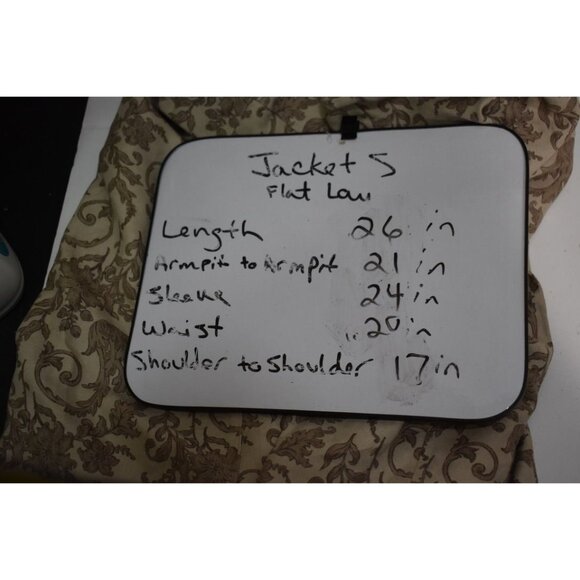 Jacket S
Flat Lau
Length 26 in
Armpit to Armpit 21 in
Sleeve 24 in
Waist 20 in
Shoulder to Shoulder 17 in